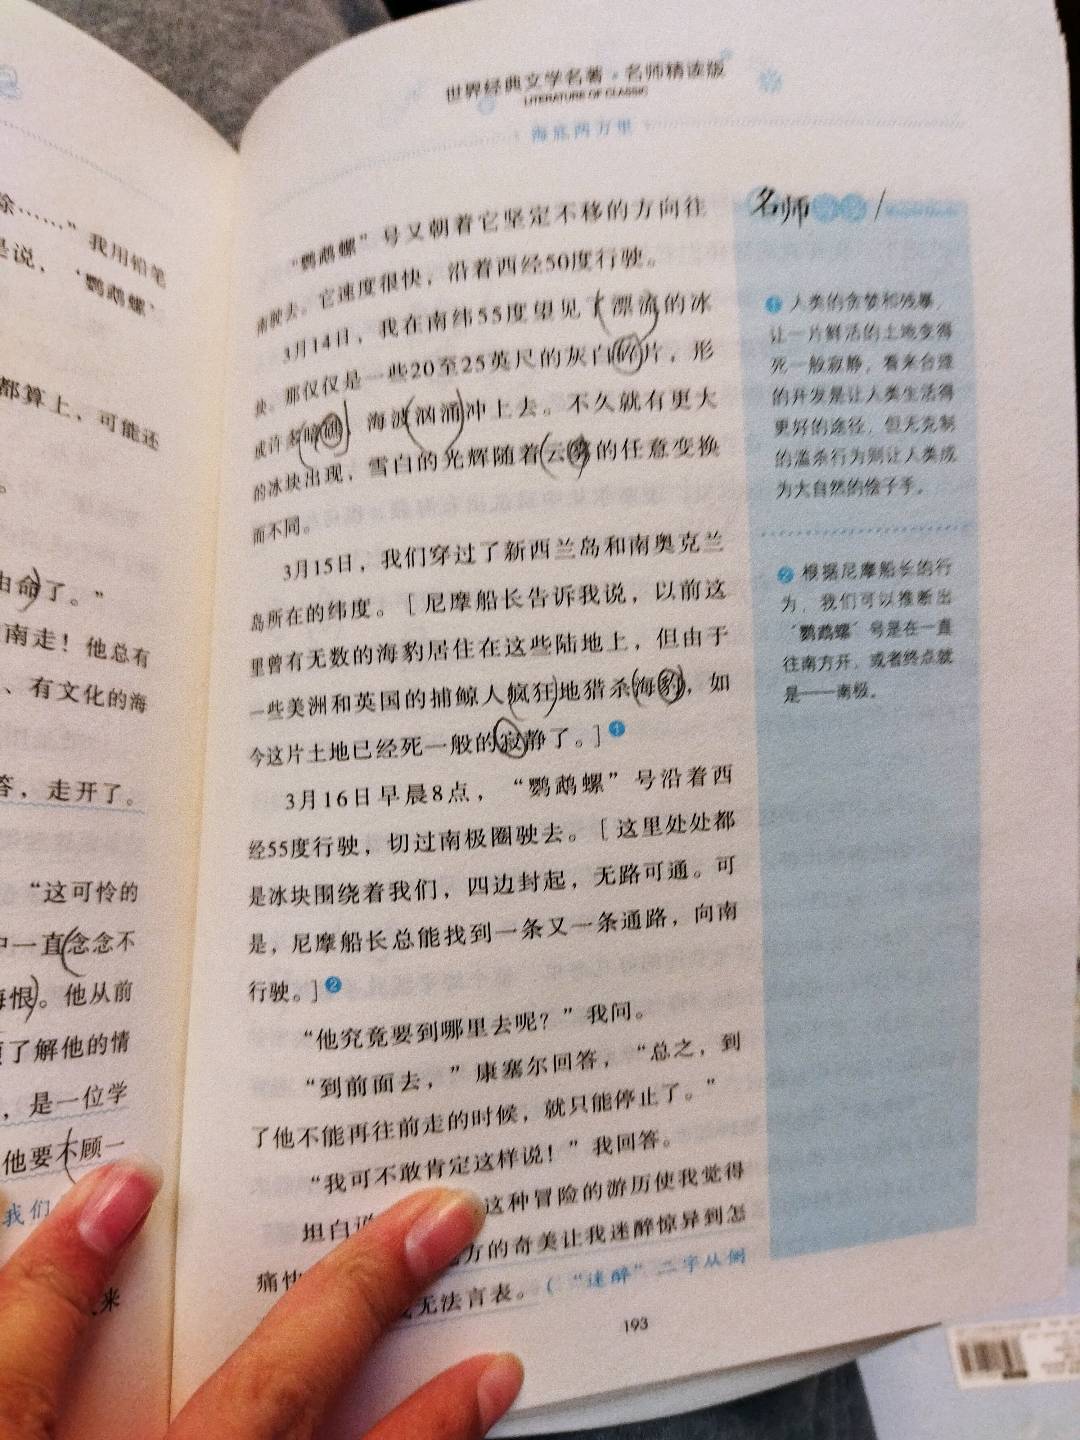 除……”我用铅笔
是说，‘鹦鹉螺’
都算上，可能还
。
由命了。”
南走！他总有
、有文化的海
答，走开了。
“这可怜的
中一直念念不
悔恨。他从前
了解他的情
，是一位学
他要不顾一
我们
来
世界经典文学名著·名师精读版
LITERATURE OF CLASSIC
海底两万里
“鹦鹉螺”号又朝着它坚定不移的方向往
南驶去。它速度很快，沿着西经50度行驶。
3月14日，我在南纬55度望见了漂流的冰
块。那仅仅是一些20至25英尺的灰白碎片，形
成许多暗礁，海波汹涌冲上去。不久就有更大
的冰块出现，雪白的光辉随着云雾的任意变换
而不同。
3月15日，我们穿过了新西兰岛和南奥克兰
岛所在的纬度。［尼摩船长告诉我说，以前这
里曾有无数的海豹居住在这些陆地上，但由于
一些美洲和英国的捕鲸人疯狂地猎杀海豹，如
今这片土地已经死一般的寂静了。］1
3月16日早晨8点，“鹦鹉螺”号沿着西
经55度行驶，切过南极圈驶去。［这里处处都
是冰块围绕着我们，四边封起，无路可通。可
是，尼摩船长总能找到一条又一条通路，向南
行驶。］2
“他究竟要到哪里去呢？”我问。
“到前面去，”康塞尔回答，“总之，到
了他不能再往前走的时候，就只能停止了。”
“我可不敢肯定这样说！”我回答。
坦白说 这种冒险的游历使我觉得
痛快 地方的奇美让我迷醉惊异到怎
无法言表。（“迷醉”二字从侧
193
名师
1 人类的贪婪和残暴，
让一片鲜活的土地变得
死一般寂静，看来合理
的开发是让人类生活得
更好的途径，但无克制
的滥杀行为则让人类成
为大自然的侩子手。
2 根据尼摩船长的行
为，我们可以推断出
“鹦鹉螺”号是在一直
往南方开，或者终点就
是——南极。